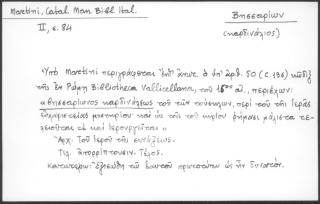 Martini, Catal. Man. Bibl. Ital.
II, σ. 84
Βησσαρίων
(καρδινάλιος)
Ὑπὸ Martini περιγράφεται ὑπ' ἀριθ. 50 (C. 136) κῶδιξ
τῆς ἐν Ρώμῃ Bibliotheca Vallicellana, τοῦ 16ου αἰ., περιέχων:
«Βησσαρίωνος καρδινάλεως τοῦ τῶν τούσκλων, περὶ τοῦ τῆς ἱερᾶς
εὐχαριστίας μυστηρίου καὶ ὡς τοῖς τοῦ κυρίου ῥήμασι μάλιστα τε-
λειοῦταί τε καὶ ἱερουργεῖται»
Ἀρχ. Τοῦ ἱεροῦ τῆς συνάξεως.
Τελ. ἀπορρίπτουσιν. Τέλος.
Κατωτέρω: ἐξισώθη τῷ ἑαυτοῦ πρωτοτύπῳ ὡς ἦν δυνατόν.